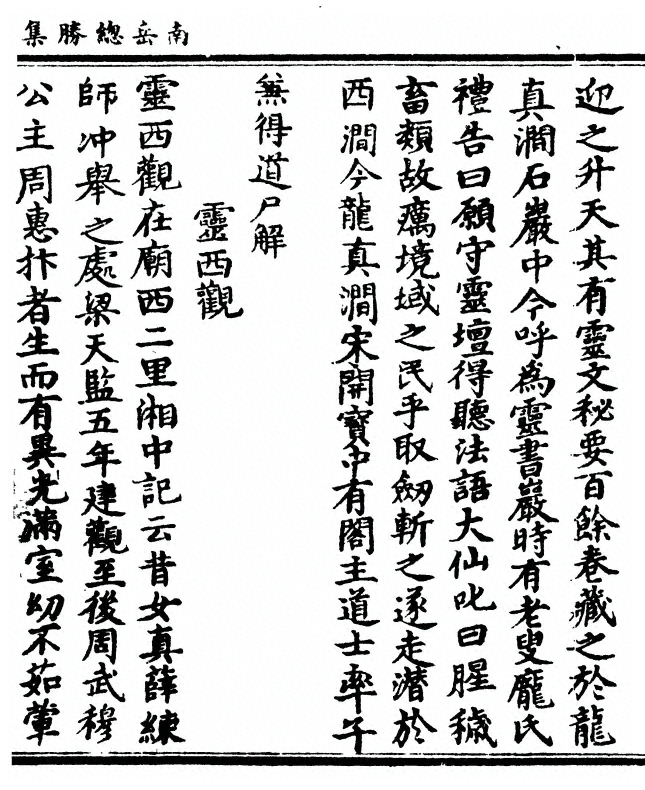 南岳總勝集
迎之升天其有靈文秘要百餘卷藏之於龍
真澗石巖中今呼為靈書巖時有老叟龐氏
禮告曰願守靈壇得聽法語大仙叱曰腥穢
畜類故癘境域之民乎取劒斬之遂走潛於
西澗今龍真澗宋開寶中有閣主道士率子
無得道尸解
靈西觀
靈西觀在廟西二里湘中記云昔女真薛練
師冲舉之處梁天監五年建觀至後周武穆
公主周惠抃者生而有異光滿室幼不茹葷